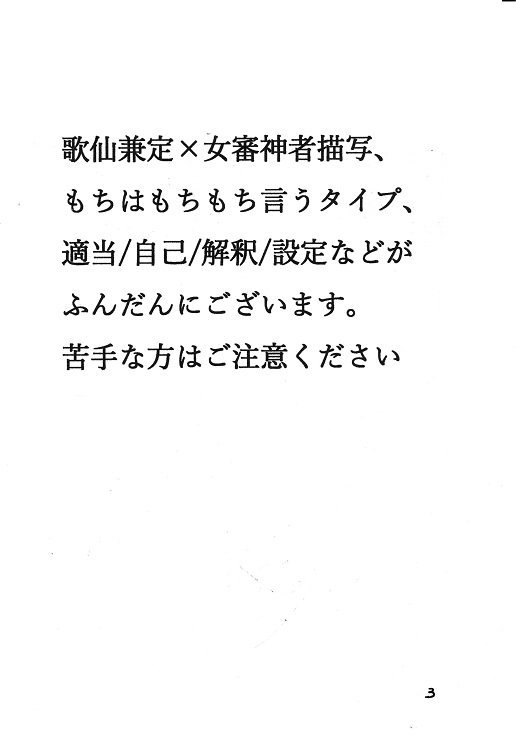 歌仙兼定×女審神者描写、
もちはもちもち言うタイプ、
適当/自己/解釈/設定などが
ふんだんにございます。
苦手な方はご注意ください
3